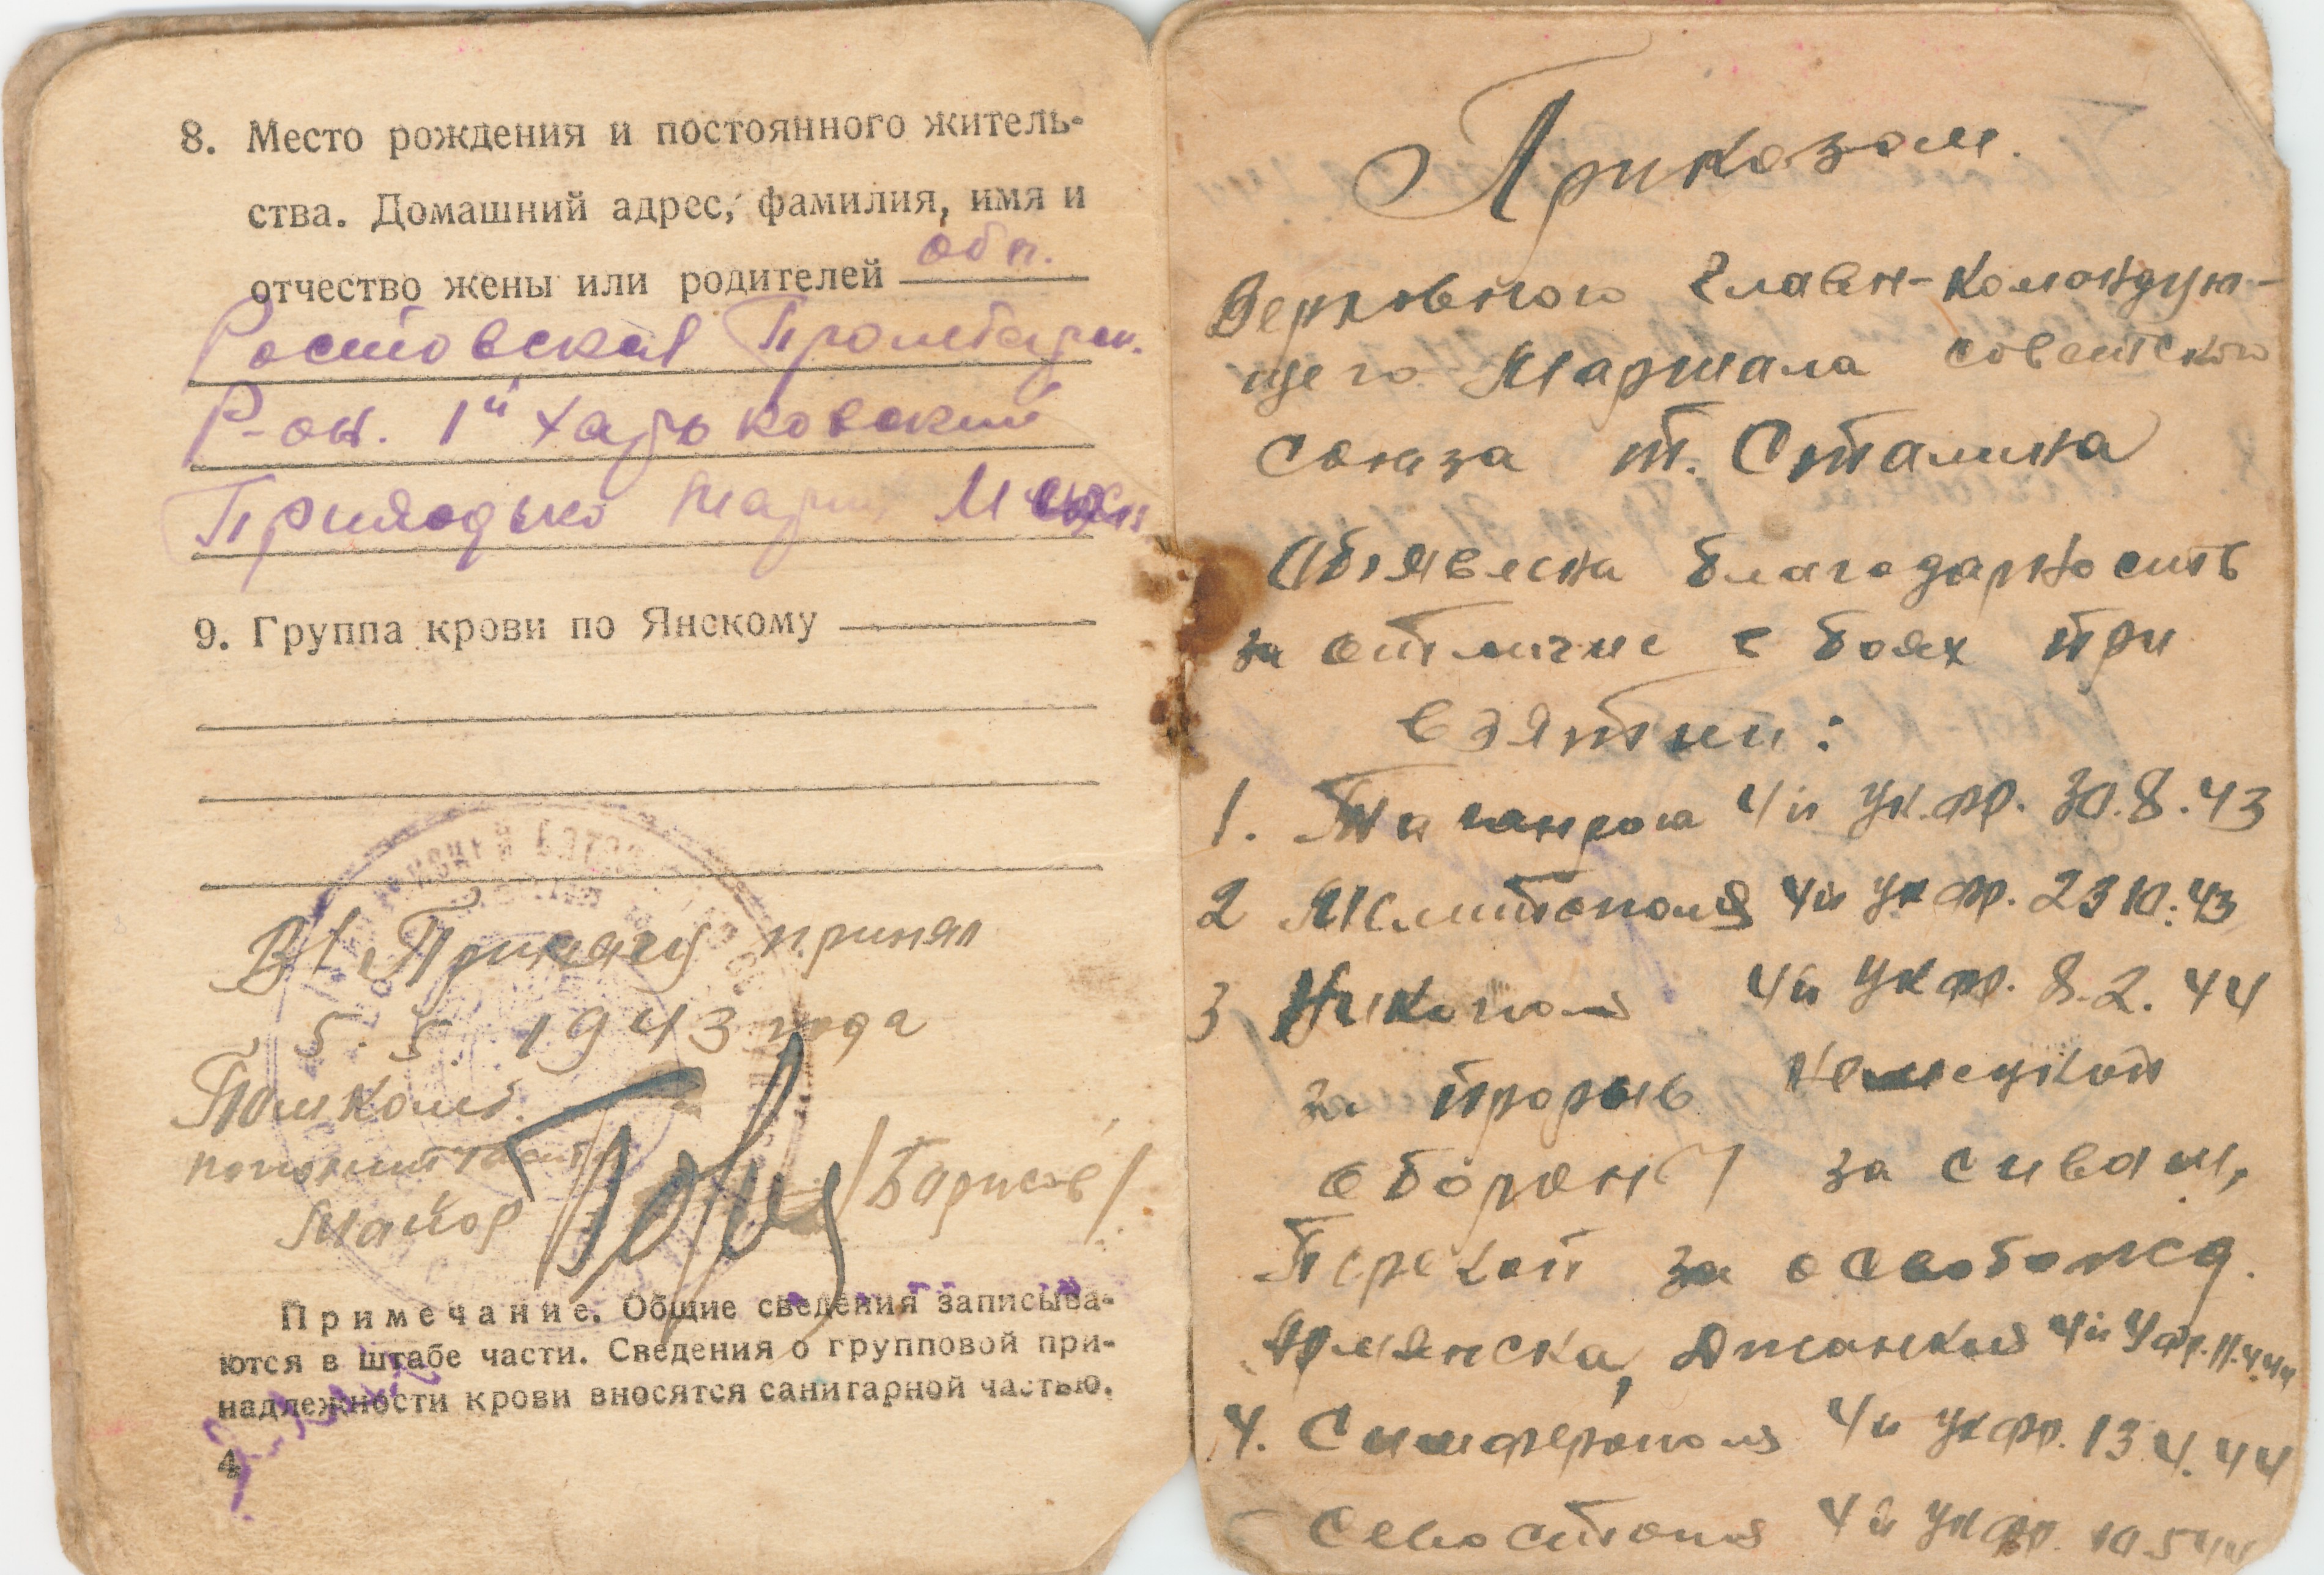 8. Место рождения и постоянного житель-
ства. Домашний адрес, фамилия, имя и
отчество жены или родителей обл.
Ростовская Пролетарск.
Р-он. 1й Харьковский
Приходько Мария
9. Группа крови по Янскому
В/Присягу принял
5. 5. 1943 года
Помком.
майор /Борисов/
Примечание. Общие сведения записыва-
ются в штабе части. Сведения о групповой при-
надлежности крови вносятся санитарной частью.
4
Приказом.
Верховного Главн-командую-
щего Маршала советского
союза т. Сталина
Объявлена благодарность
за отличие в боях при
взятии:
1. Таганрога 4й Ук.фр. 30.8.43
2 Мелитополя 4й Ук фр. 23 10.43
3 Никополя 4й Ук фр. 8.2.44
за прорыв немецкой
обороны за сиваш,
Перекоп за освобожд.
Армянска, Джанкоя 4й У фр. 11.4.44
4. Симферополя 4й Ук фр. 13 4.44
Севостополя 4й Ук фр. 10 5 44